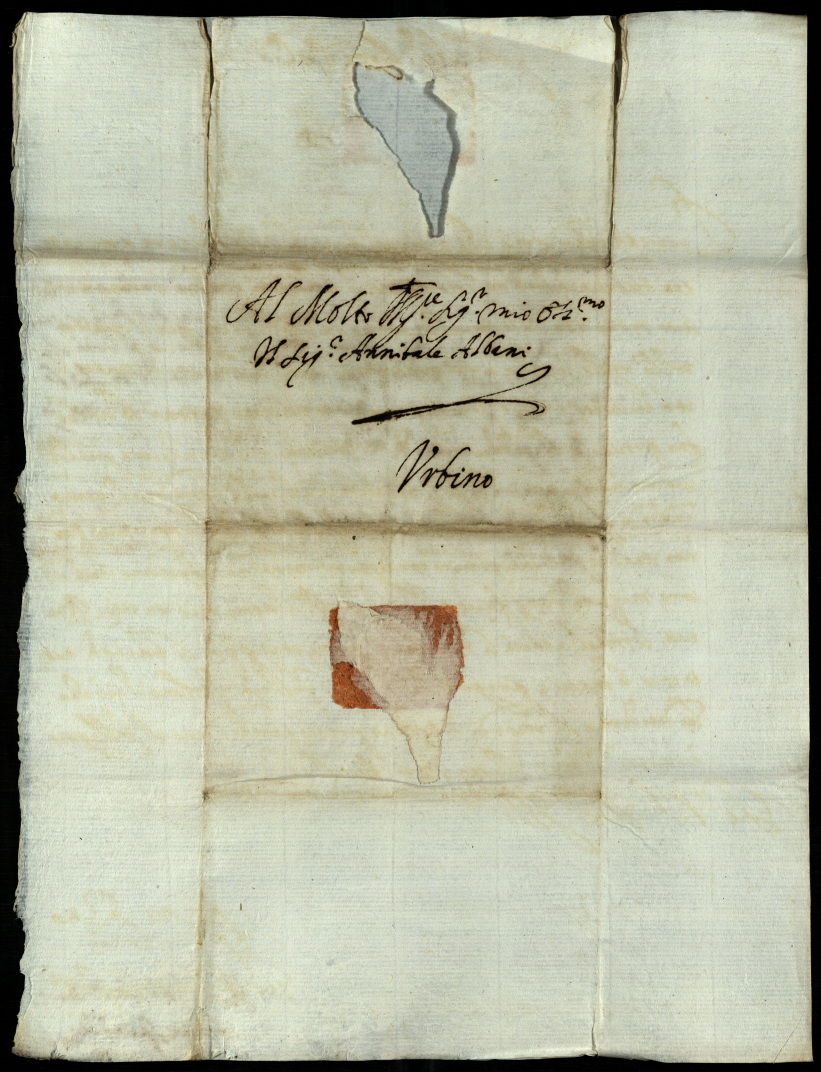 Al Molto Ill.re Sig.r mio Oss.mo
Il Sig.r Annibale Albani
Urbino